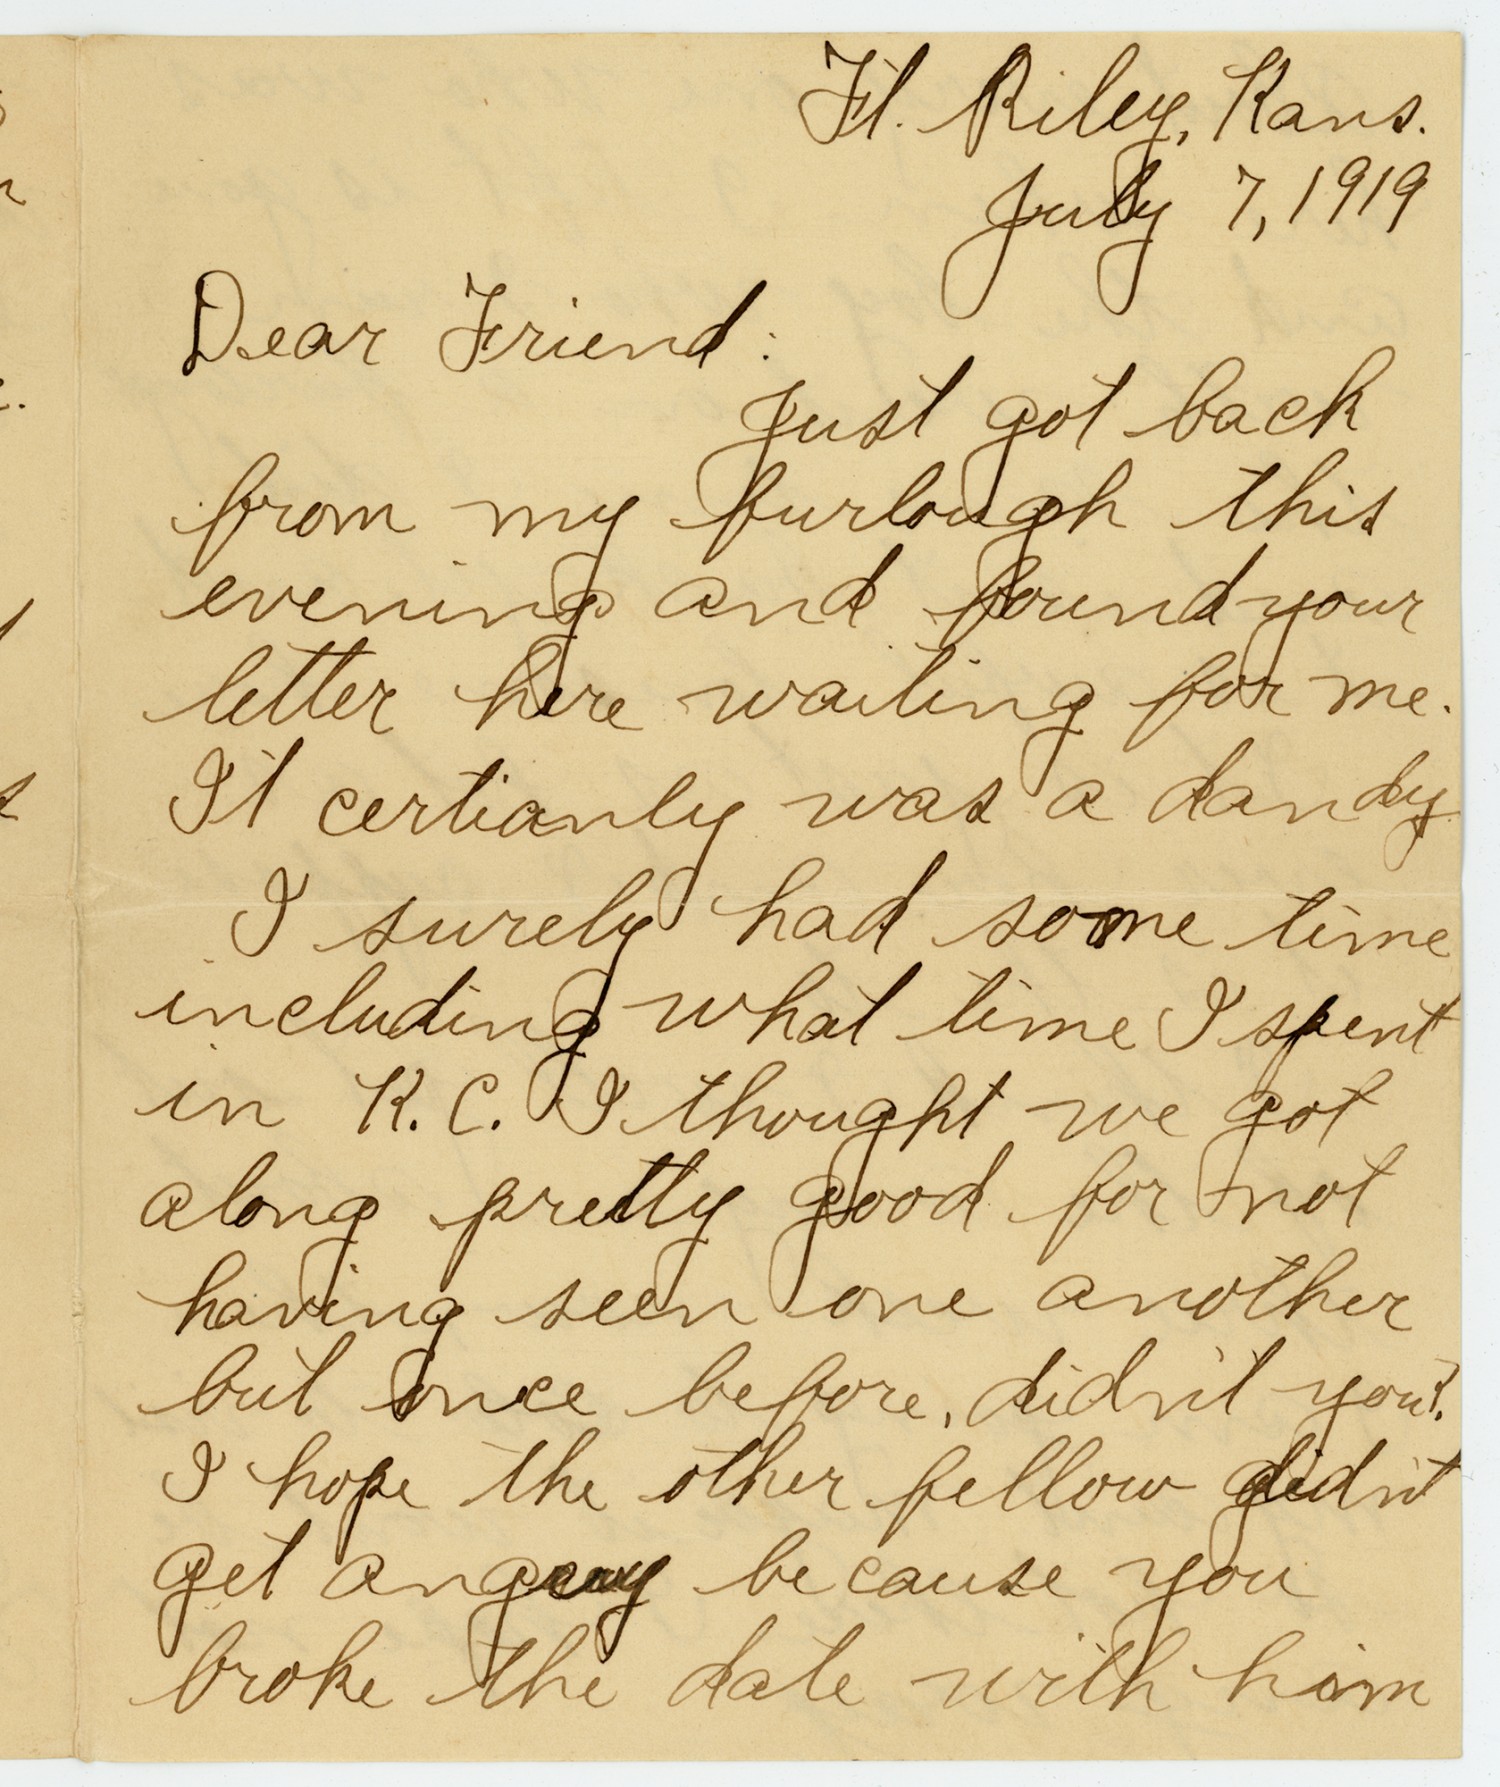 Ft. Riley, Kans.
July 7, 1919
Dear Friend:
Just got back
from my furlough this
evening and found your
letter here waiting for me.
It certianly was a dandy
I surely had some time
including what time I spent
in K.C. I thought we got
along pretty good for not
having seen one another
but once before, didn't you?.
I hope the other fellow didn't
get angry because you
broke the date with him